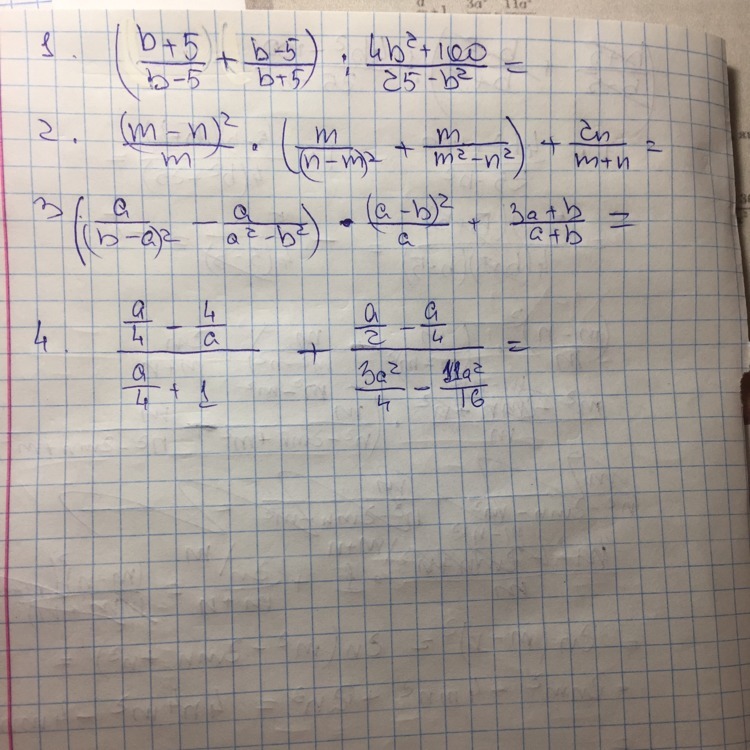 1. ((b+5)/(b-5) + (b-5)/(b+5)) : (4b²+100)/(25-b²) =
2. (m-n)²/m · (m/(n-m)² + m/(m²-n²)) + 2n/(m+n) =
3 (a/(b-a)² - a/(a²-b²)) · (a-b)²/a + (3a+b)/(a+b) =
4. (a/4 - 4/a)/(a/4 + 1) + (a/2 - a/4)/(3a²/4 - 11a²/16) =